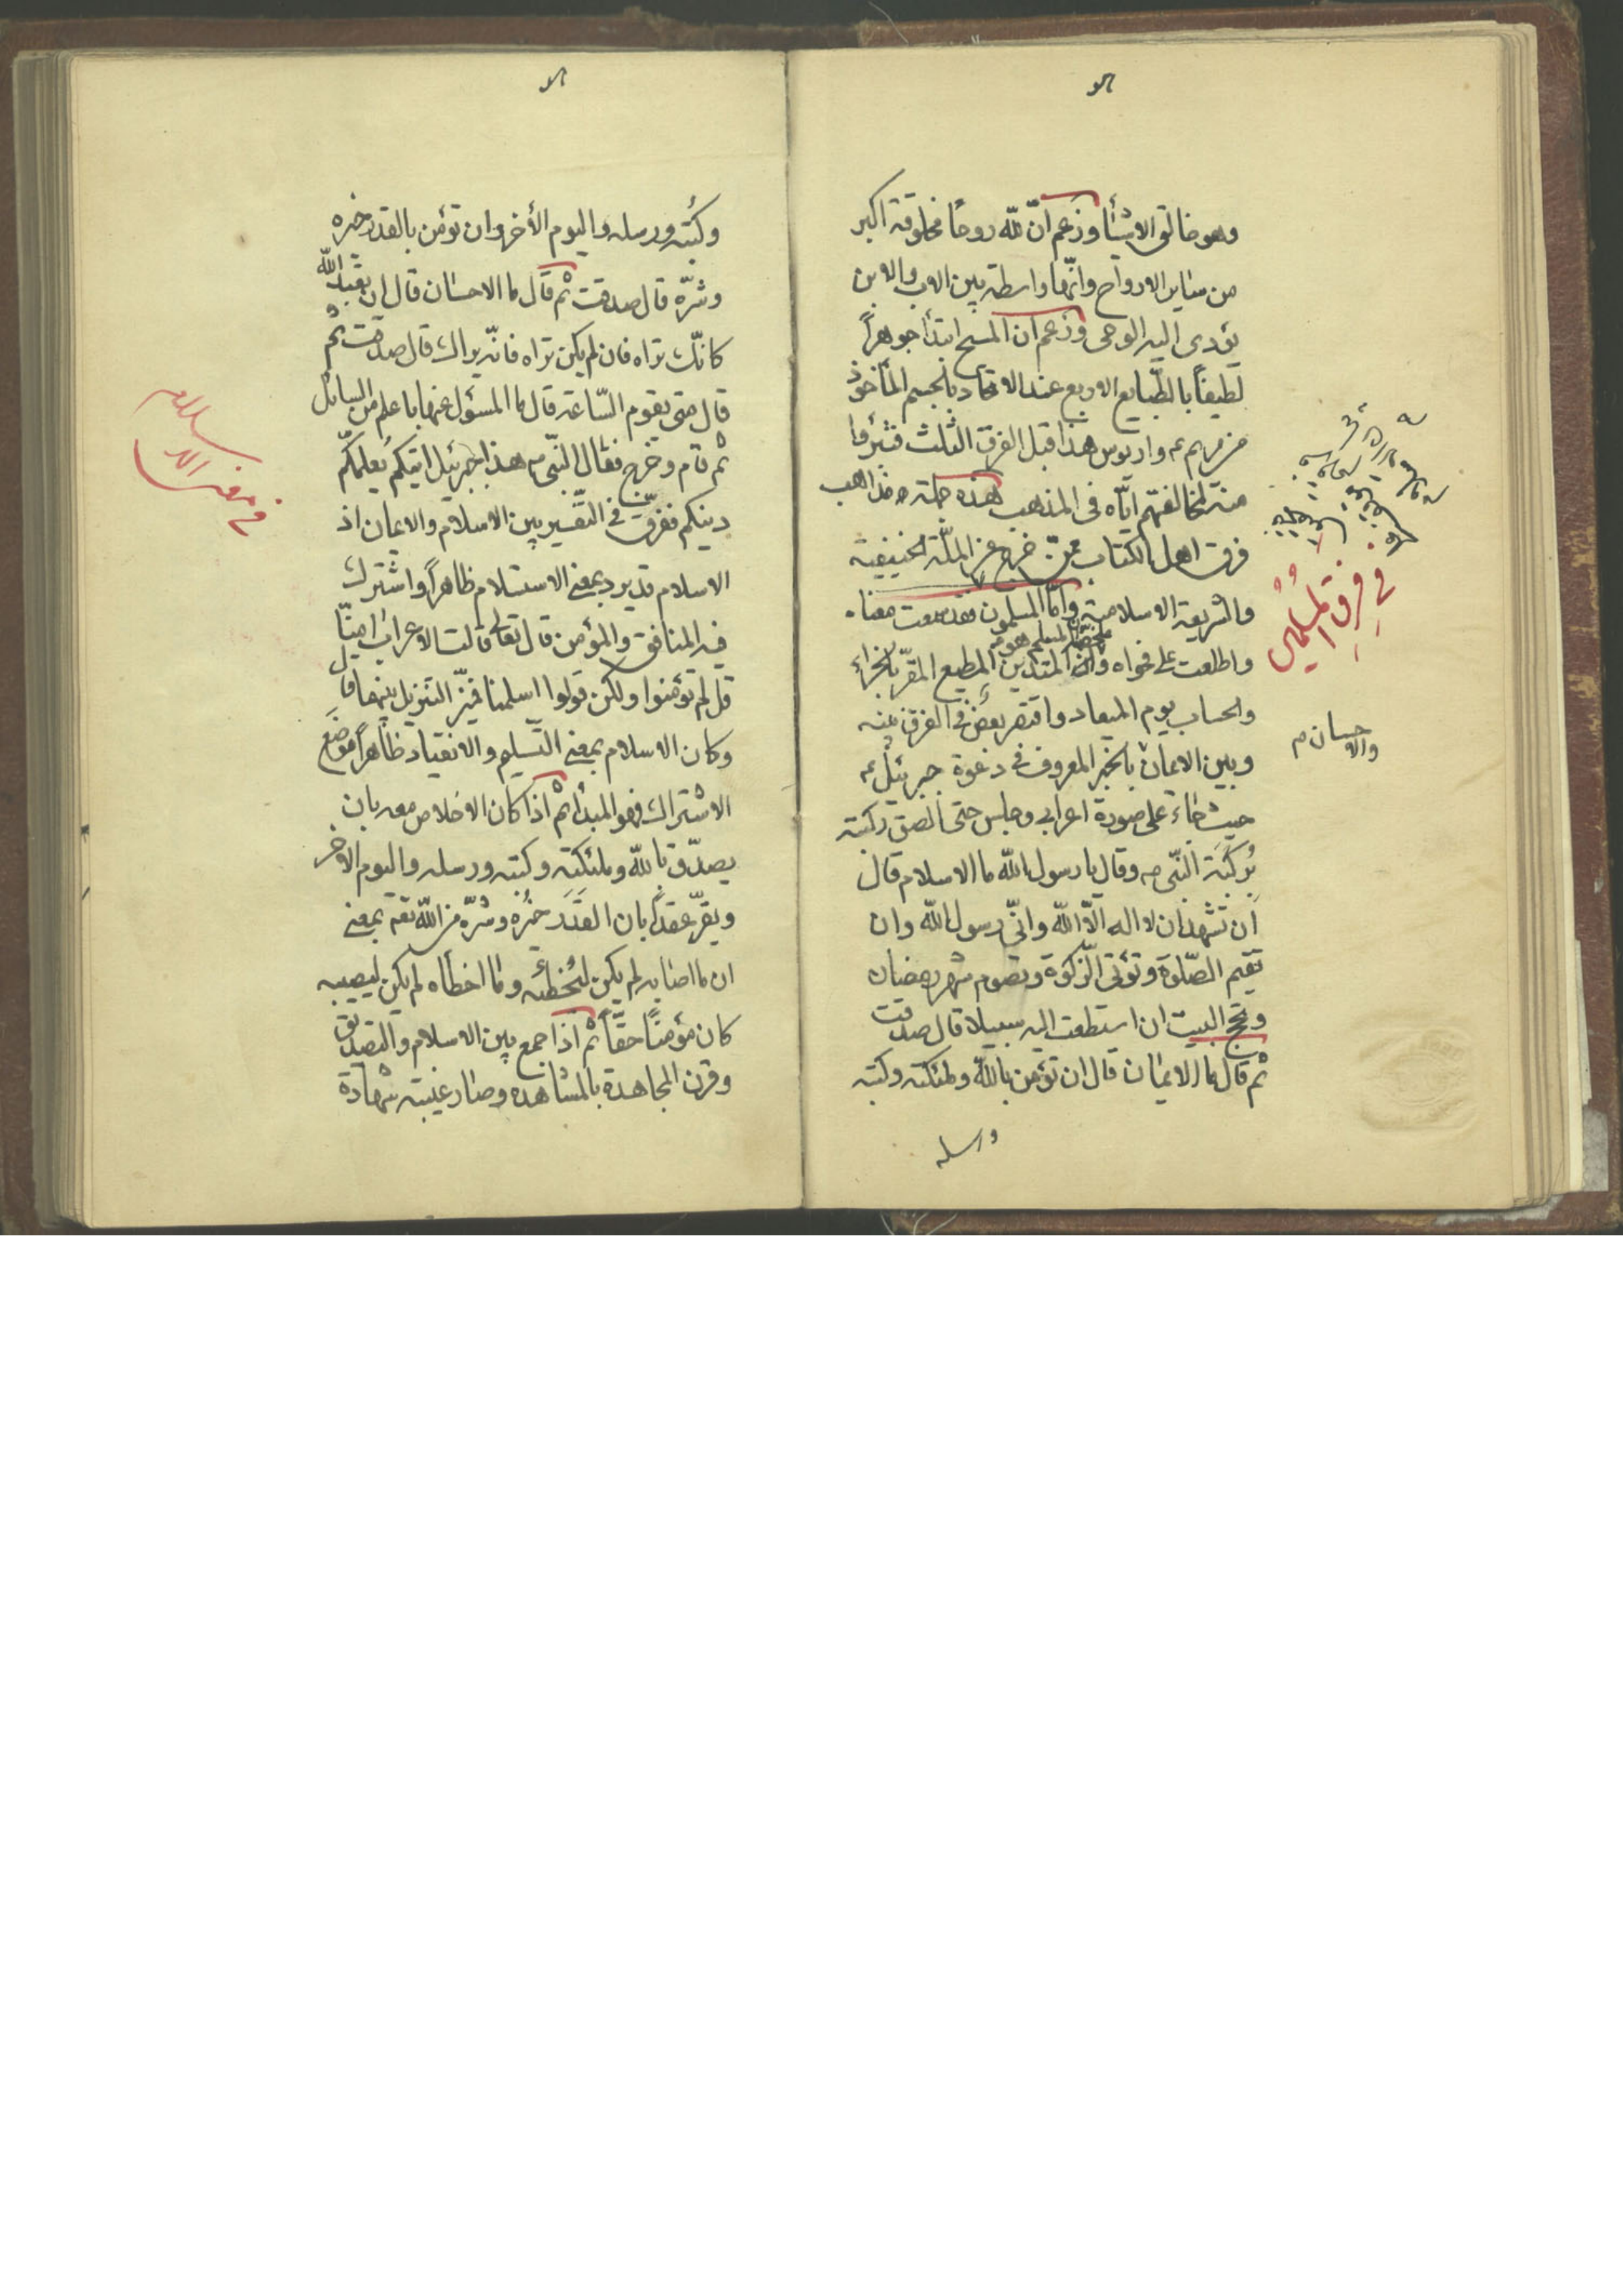 وهو خالق الاشيأ وزعم انّ للّه روحاً مخلوقة اكبر
من ساير الارواح وانّها واسطة بين الاب والابن
يؤدى اليه الوحى وزعم ان المسيح ابتدأ جوهراً
لطيفاً بالطّبايع الاربع عند الاتحاد بالجسم المأخوذ
من مريم ع واريوس هذا قبل الفرق الثلث فتبرؤا
منه لمخالفتهم ايّاه فى المذهب هذه جملة مذاهب
فرق اهل الكتاب ممّن خرج عن الملّة الحنيفية
والشريعة الاسلامية وامّا المسلمون فقد سمعت معناه
المسلم هو
واطلعت على فحواه وانه المتديّن المطيع المقرّ بالجزاء
والحساب يوم الميعاد واقتصر بعض فى الفرق بينه
وبين الايمان بالخبر المعروف فى دعوة جبرئيل ع
حيث جاء على صورة اعرابى وجلس حتى الصق ركبته
بركبة النّبى ص وقال يا رسول اللّه ما الاسلام قال
ان تشهد ان لا اله الّا اللّه وانّى رسول اللّه وان
تقيم الصّلوة وتؤتى الزّكوة وتصوم شهر رمضان
وتحج البيت ان استطعت اليه سبيلا قال صدقت
ثم قال ما الايمان قال ان تؤمن باللّه وملئكته وكتبه
ورسله
فى فرق المسلمين
والاحسان م
وكتبه ورسله واليوم الأخر وان تؤمن بالقدر خيره
وشرّه قال صدقت ثم قال ما الاحسان قال ان تعبد اللّه
كانّك تراه فان لم يكن تراه فانّه يراك قال صدقت ثم
قال متى يقوم السّاعة قال ما المسؤل عنها باعلم من السائل
ثم قام وخرج فقال النّبى ص هذا جبرئيل اتيكم يعلمكم
دينكم ففرق فى التفسير بين الاسلام والايمان اذ
الاسلام قد يرد بمعنى الاستسلام ظاهراً واشترك
فيه المنافق والمؤمن قال تعالى قالت الاعراب امنّا
قل لم تؤمنوا ولكن قولوا اسلمنا فميّز التنزيل بينهما
وكان الاسلام بمعنى التّسليم والانقياد ظاهراً موضع
الاشتراك فهو المبدأ ثم اذا كان الاخلاص معه بان
يصدّق باللّه وملئكته وكتبه ورسله واليوم الآخر
ويقرّ عقداً بان القدر خيره وشرّه من اللّه تعم بمعنى
ان ما اصابه لم يكن ليخطئه وما اخطاه لم يكن ليصيبه
كان مؤمنًا حقّاً ثم اذا جمع بين الاسلام والتصديق
وقرن المجاهدة بالمشاهده وصار غيبته شهادة